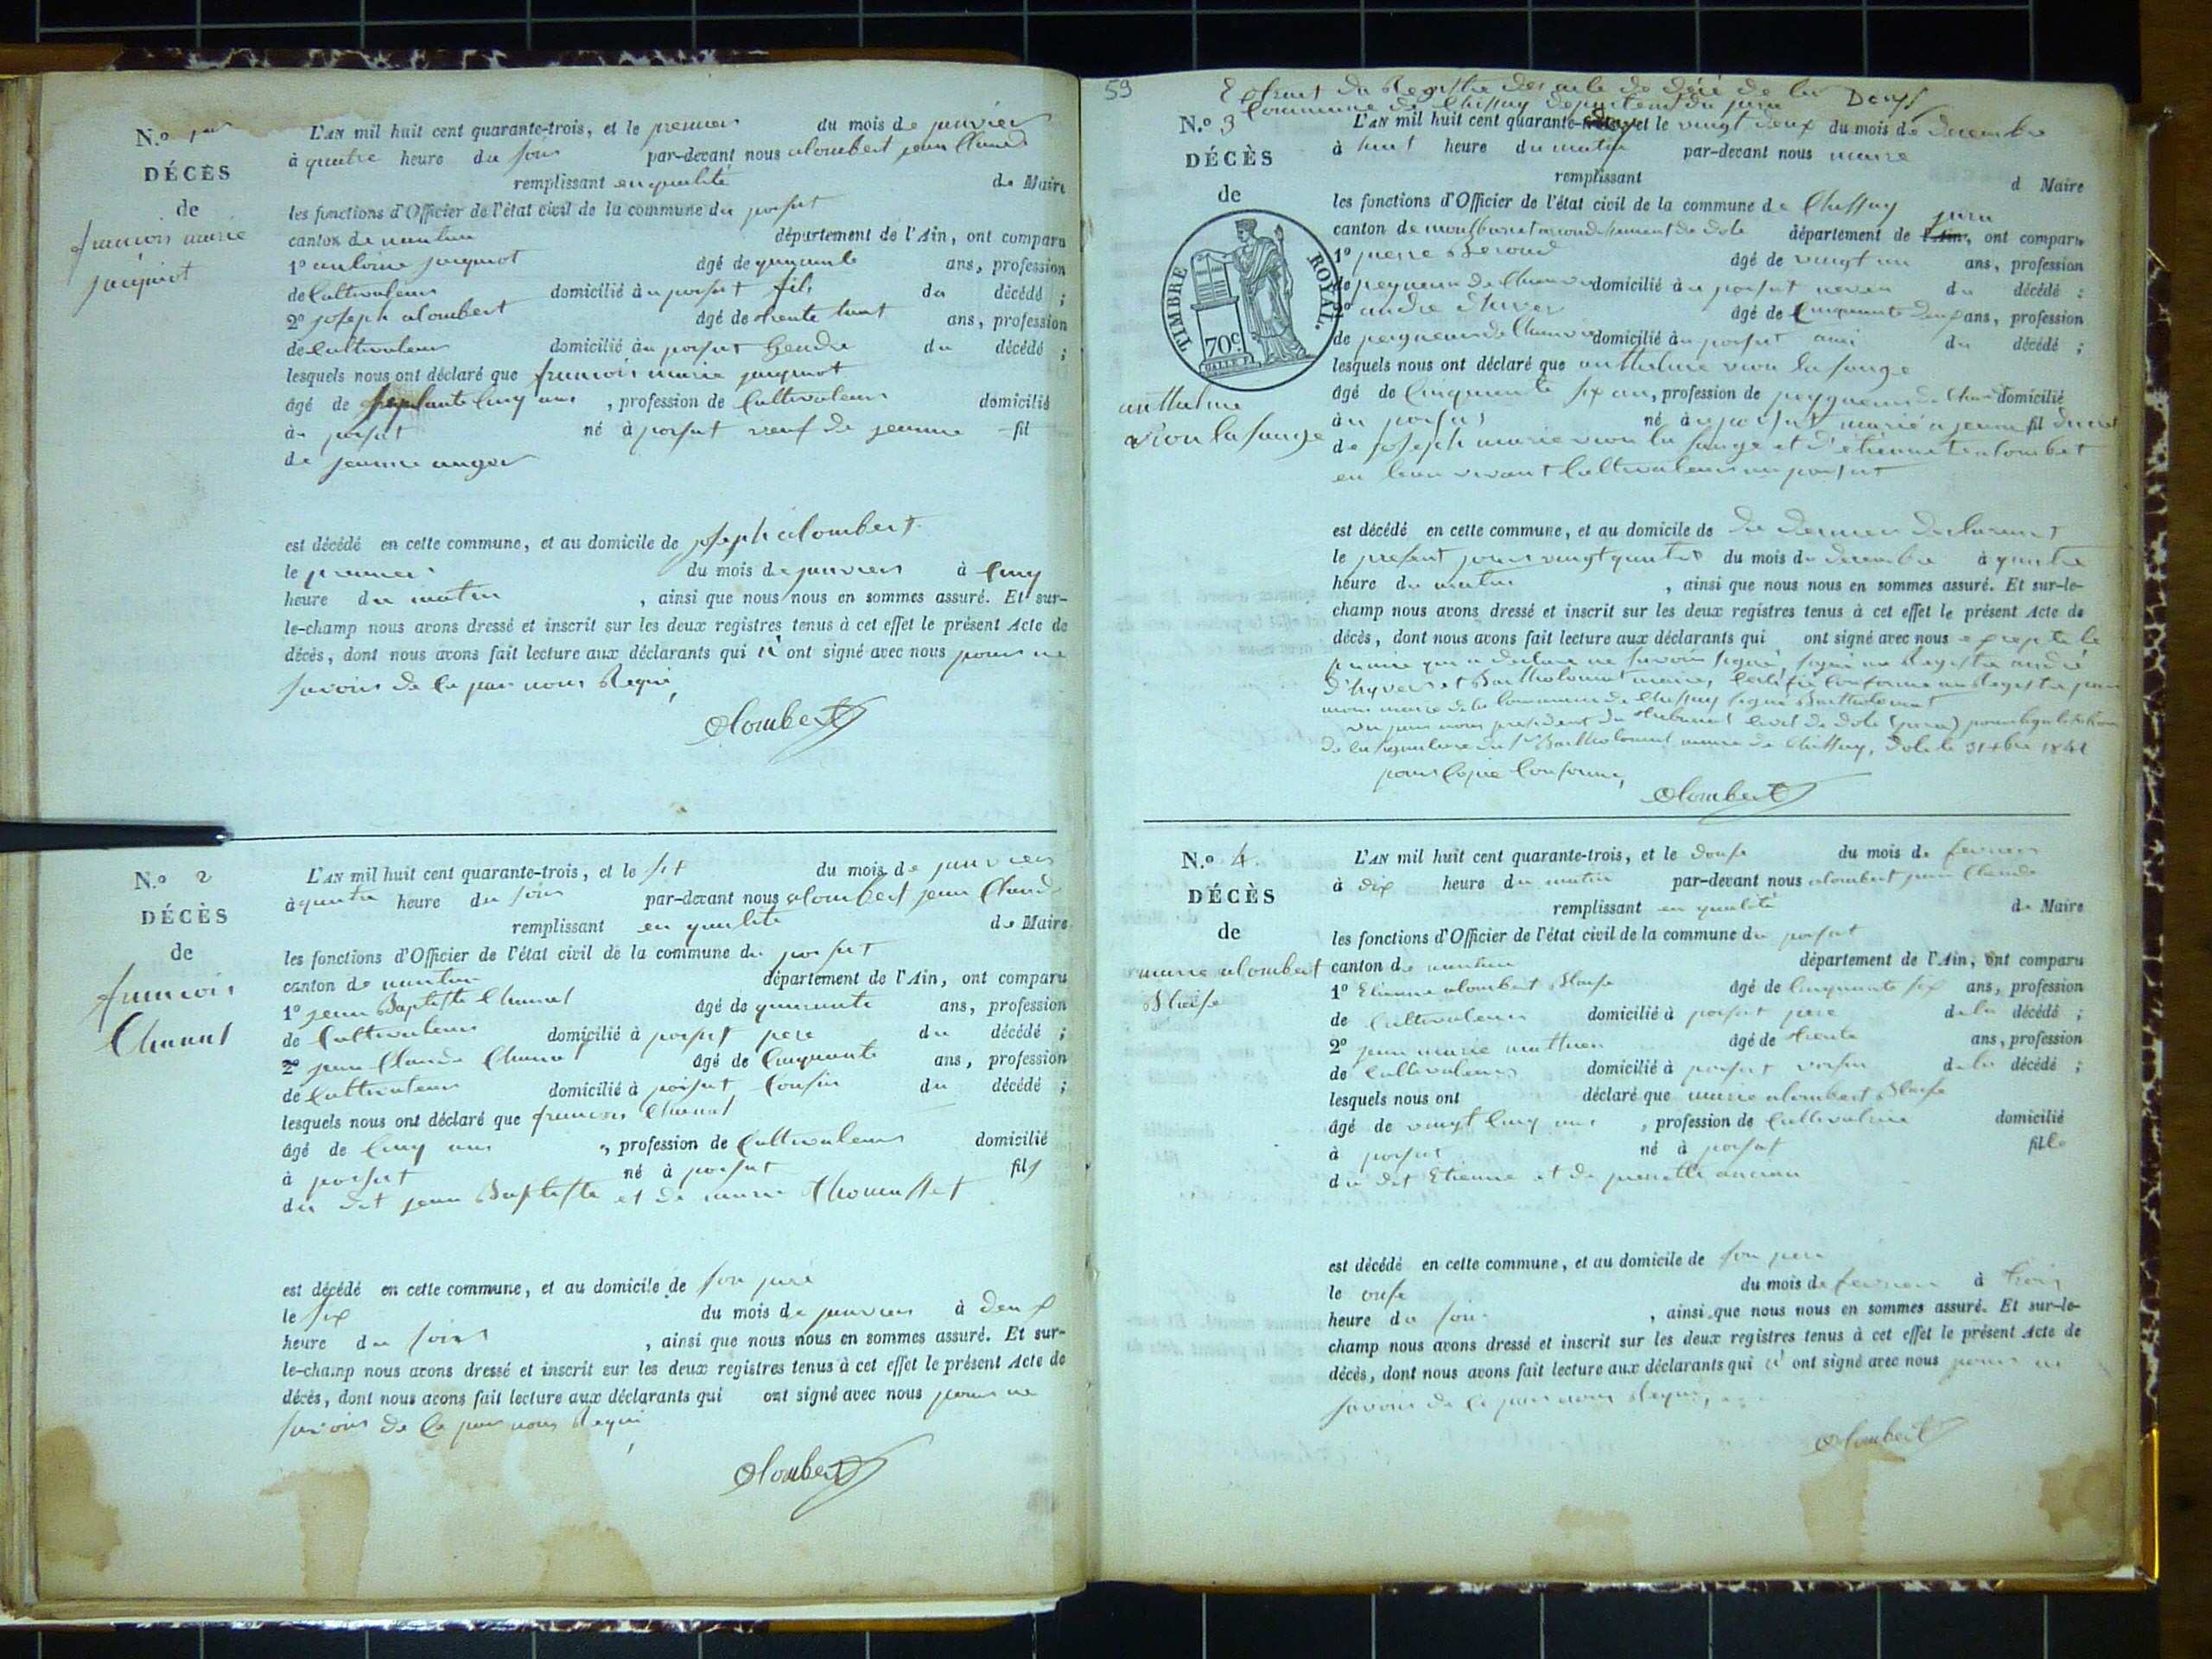 N.º 1er
DÉCÈS
de
francois marie
jacquiot
L'AN mil huit cent quarante-trois, et le premier du mois de janvier
à quatre heure du soir par-devant nous alombert jean Claude
remplissant en qualité de Maire
les fonctions d'Officier de l'état civil de la commune du
canton de nantua département de l'Ain, ont comparu
1º antoine jacquiot âgé de quarante ans, profession
de Cultivateur domicilié au fils du décédé ;
2º joseph alombert âgé de trente huit ans, profession
de Cultivateur domicilié au Gendre du décédé ;
lesquels nous ont déclaré que francois marie jacquiot
âgé de Cinq ans , profession de Cultivateur domicilié
au né à veuf de jeanne fil
de jeanne
est décédé en cette commune, et au domicile de joseph alombert
le premier du mois de janvier à Cinq
heure du matin , ainsi que nous nous en sommes assuré. Et sur-
le-champ nous avons dressé et inscrit sur les deux registres tenus à cet effet le présent Acte de
décès, dont nous avons fait lecture aux déclarants qui n' ont signé avec nous pour ne
savoir de Ce par nous Requi
alombert
N.º 2
DÉCÈS
de
francois
L'AN mil huit cent quarante-trois, et le six du mois de janvier
à quatre heure du soir par-devant nous alombert jean Claude
remplissant en qualité de Maire
les fonctions d'Officier de l'état civil de la commune du
canton de nantua département de l'Ain, ont comparu
1º jean Baptiste âgé de quarante ans, profession
de Cultivateur domicilié à pere du décédé ;
2º jean Claude âgé de Cinquante ans, profession
de Cultivateur domicilié à Cousin du décédé ;
lesquels nous ont déclaré que francois
âgé de Cinq ans , profession de Cultivateur domicilié
à né à fils
du dit jean Baptiste et de marie thomasset
est décédé en cette commune, et au domicile de son pere
le six du mois de janvier à deux
heure du soir , ainsi que nous nous en sommes assuré. Et sur-
le-champ nous avons dressé et inscrit sur les deux registres tenus à cet effet le présent Acte de
décès, dont nous avons fait lecture aux déclarants qui ont signé avec nous pour ne
savoir de Ce par nous Requi
alombert
59
Extrait du Registre des acte de déci de la
Commune de Chissey departement du jura
N.º 3
DÉCÈS
de
TIMBRE ROYAL.
70c.
anthelme
vion la sange
L'AN mil huit cent quarante- et le vingt deux du mois de decembre
à huit heure du matin par-devant nous maire
remplissant d Maire
les fonctions d'Officier de l'état civil de la commune de Chissey
canton de arondissement de dole département de l'Ain, jura ont comparu
1º pierre Beroud âgé de vingt un ans, profession
de peigneur de Chanvre domicilié au neveu du décédé ;
2º andre âgé de Cinquante deux ans, profession
de peigneur de Chanvre domicilié au ami du décédé ;
lesquels nous ont déclaré que anthelme vion la sange
âgé de Cinquante six ans, profession de peigneur de domicilié
au né au marié a jeanne fil
de joseph marie vion la sange et d'etiennette alombert
en leur vivant Cultivateur au
est décédé en cette commune, et au domicile de du dernier declarant
le present jour vingt quatre du mois de decembre à quatre
heure du matin , ainsi que nous nous en sommes assuré. Et sur-le-
champ nous avons dressé et inscrit sur les deux registres tenus à cet effet le présent Acte de
décès, dont nous avons fait lecture aux déclarants qui ont signé avec nous excepte le
qui a declare ne savoir signé, signé au Registre andré
et Bartholomot maire, Certifié Conforme au Registre par
nous maire de la Commune de Chissey signé Bartholomot
vu par nous president du tribunal Civil de dole (jura) pour legalisation
de la signature du Sr Bartholomot maire de Chissey, dole le 31 xbre
pour Copie Conforme,
alombert
N.º 4
DÉCÈS
de
marie alombert
Blaise
L'AN mil huit cent quarante-trois, et le douse du mois de fevrier
à dix heure du matin par-devant nous alombert jean Claude
remplissant en qualité de Maire
les fonctions d'Officier de l'état civil de la commune du
canton de nantua département de l'Ain, ont comparu
1º Etienne alombert Blaise âgé de Cinquante six ans, profession
de Cultivateur domicilié à pere de la décédé ;
2º jean marie mathieu âgé de trente ans, profession
de Cultivateur domicilié à voisin de la décédé ;
lesquels nous ont déclaré que marie alombert Blaise
âgé de vingt Cinq ans , profession de Cultivatrice domicilié
à né à fille
du dit Etienne et de
est décédé en cette commune, et au domicile de son pere
le onse du mois de fevrier à trois
heure du soir , ainsi que nous nous en sommes assuré. Et sur-le-
champ nous avons dressé et inscrit sur les deux registres tenus à cet effet le présent Acte de
décès, dont nous avons fait lecture aux déclarants qui n' ont signé avec nous pour ne
savoir de Ce par nous Requi,
alombert